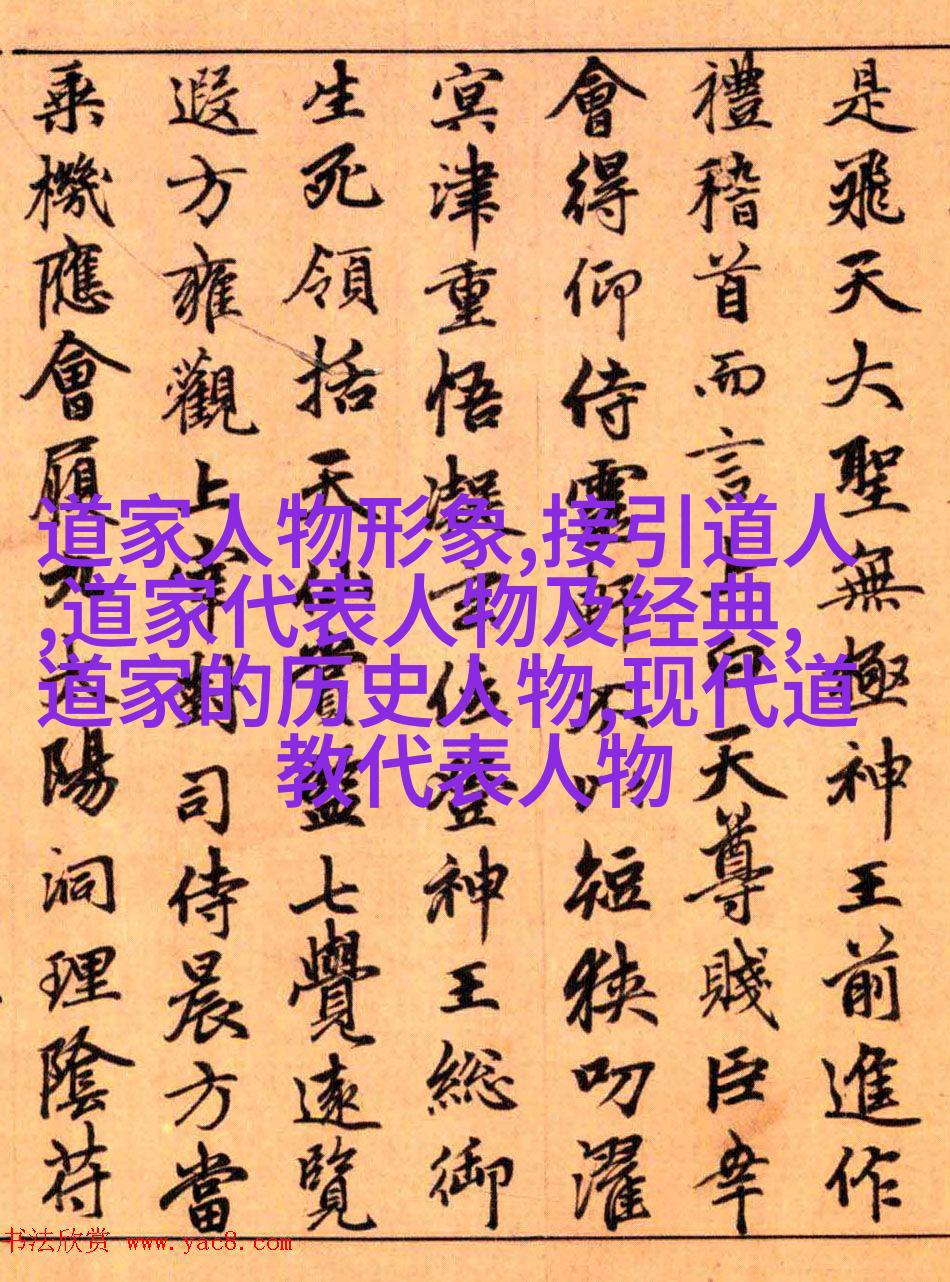 是飛天大聖無極神王前進作
禮稽首而言上白天尊賤臣幸
會得仰侍靈軒不以短狹叨濯
冥津重悟凝玄位登神王総御
生死領括天仙賞監七覺遠覽
遐方雍觀上宰對司侍晨方當
乘機應會履陽洞理陰符
道家人物形象,接引道人
,道家代表人物及经典,
道家的历史人物,现代道
教代表人物
书法欣赏 www.yac8.com